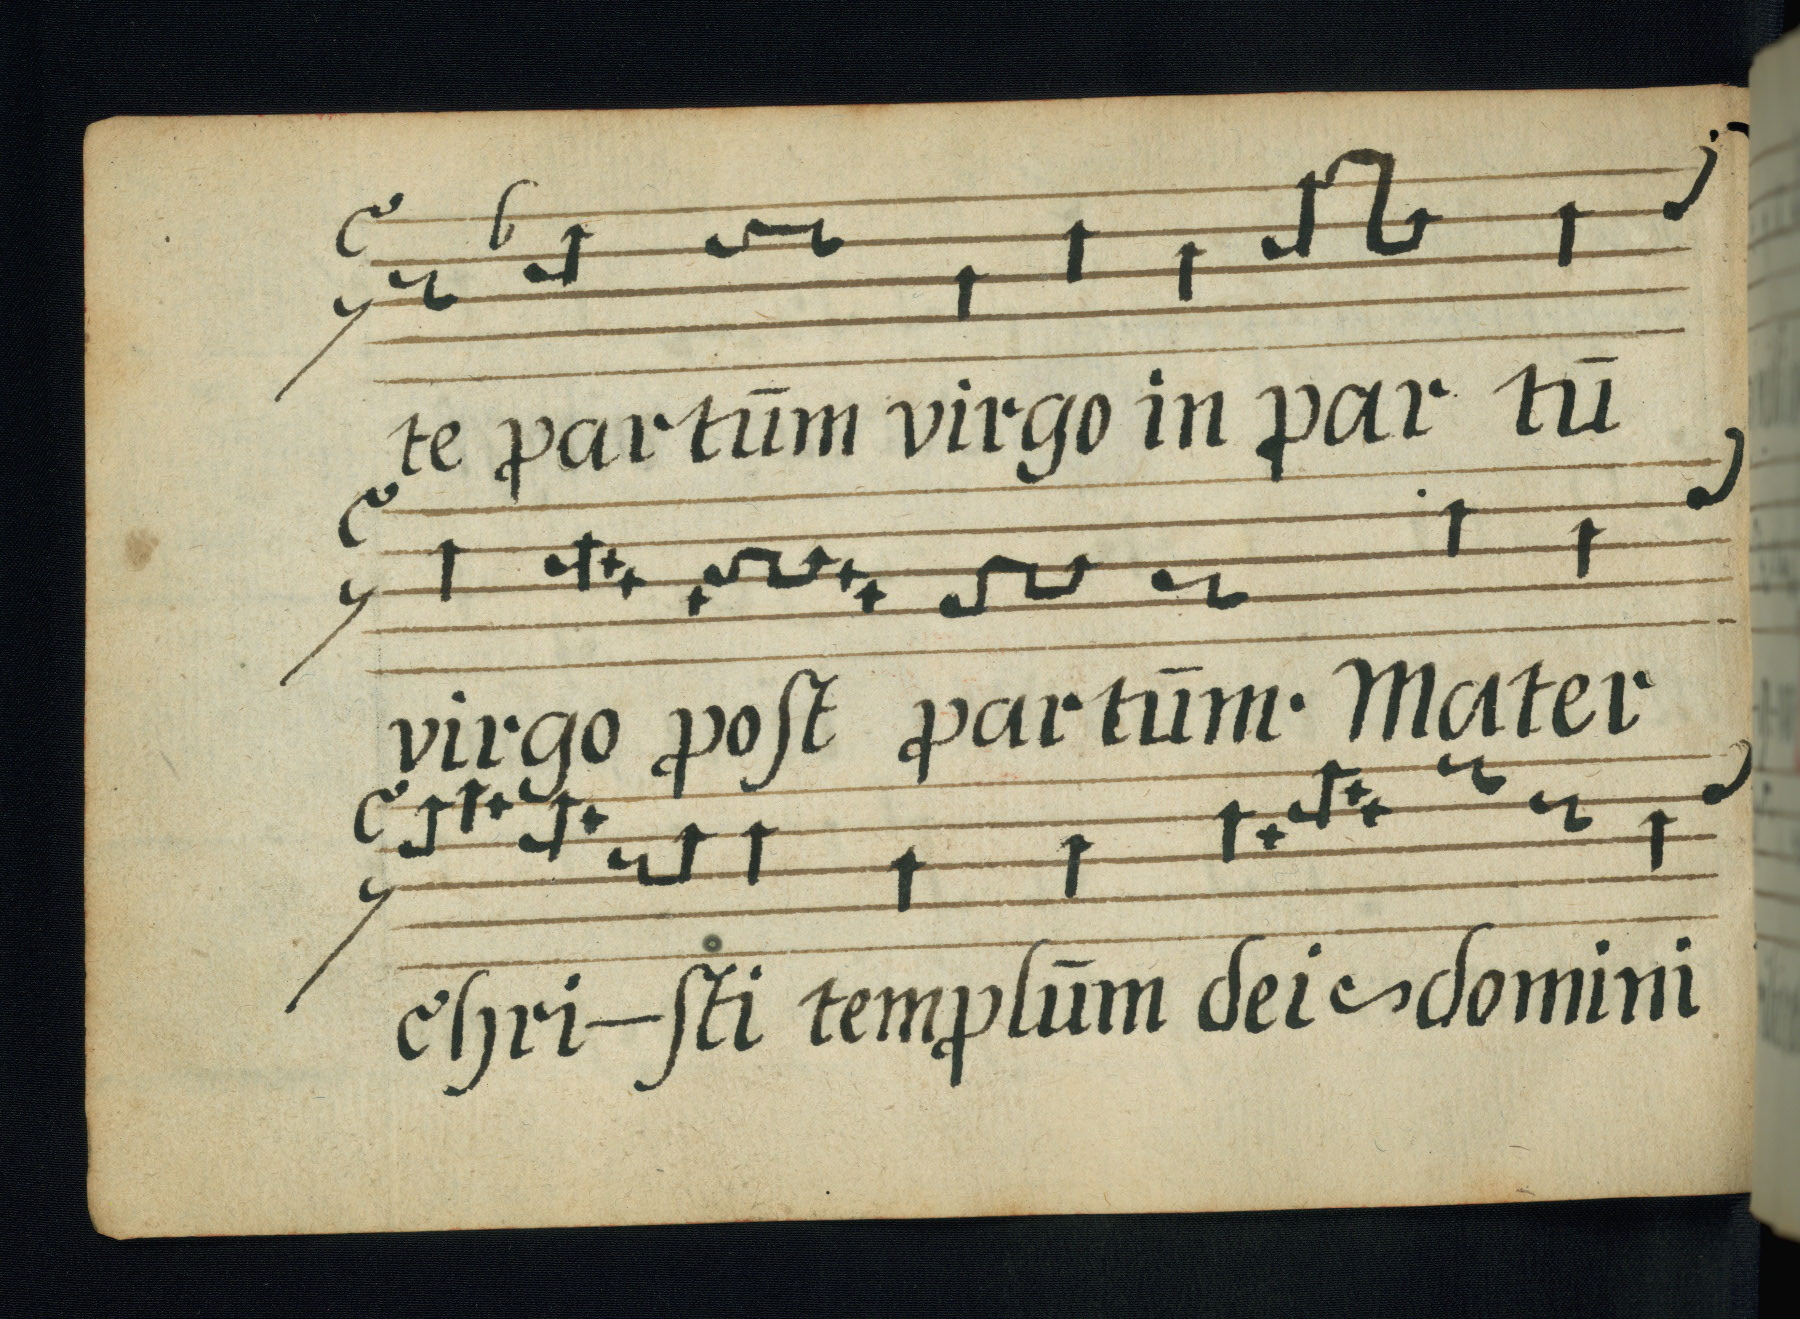 te partūm virgo in par tū
virgo poſt partūm. Mater
Chri—ſti templūm dei domini